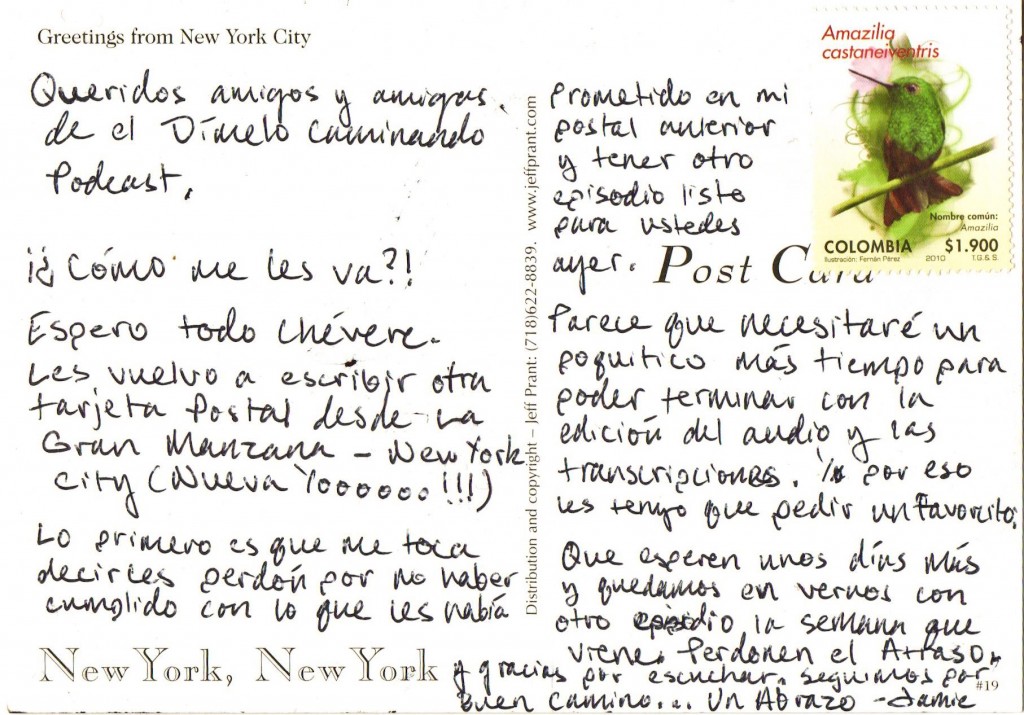 Greetings from New York City
Queridos amigos y amigas
de el Dímelo Caminando
Podcast,
¡¿Cómo me les va?!
Espero todo chévere.
Les vuelvo a escribir otra
tarjeta Postal desde La
Gran Manzana – New York
City (Nueva Yoooooo!!!)
Lo primero es que me toca
decirles perdón por no haber
cumplido con lo que les había
New York, New York
Distribution and copyright – Jeff Prant: (718)622-8839. www.jeffprant.com
Amazilia
castaneiventris
Nombre común:
Amazilia
COLOMBIA $1.900
Ilustración: Fernán Pérez 2010 T.G.& S.
Post Card
Prometido en mi
postal anterior
y tener otro
episodio listo
para ustedes
ayer.
Parece que necesitaré un
poquitico más tiempo para
poder terminar con la
edición del audio y las
transcripciones. Y por eso
les tengo que pedir un favorcito.
Que esperen unos días más
y quedamos en vernos con
otro episodio la semana que
viene. Perdonen el Atraso,
y gracias por escuchar. seguimos por
buen camino... Un Abrazo - Jamie
#19